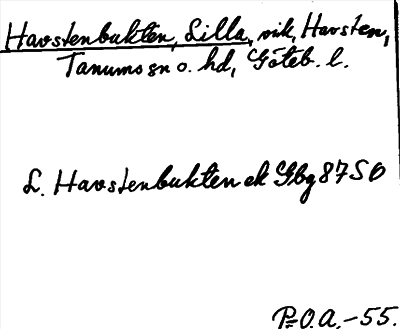 Havstenbukten, Lilla, vik, Havsten,
Tanums sn o. hd, Göteb. l.
L. Havstenbukten ek Gbg 87 SO
P=O.A.-55.